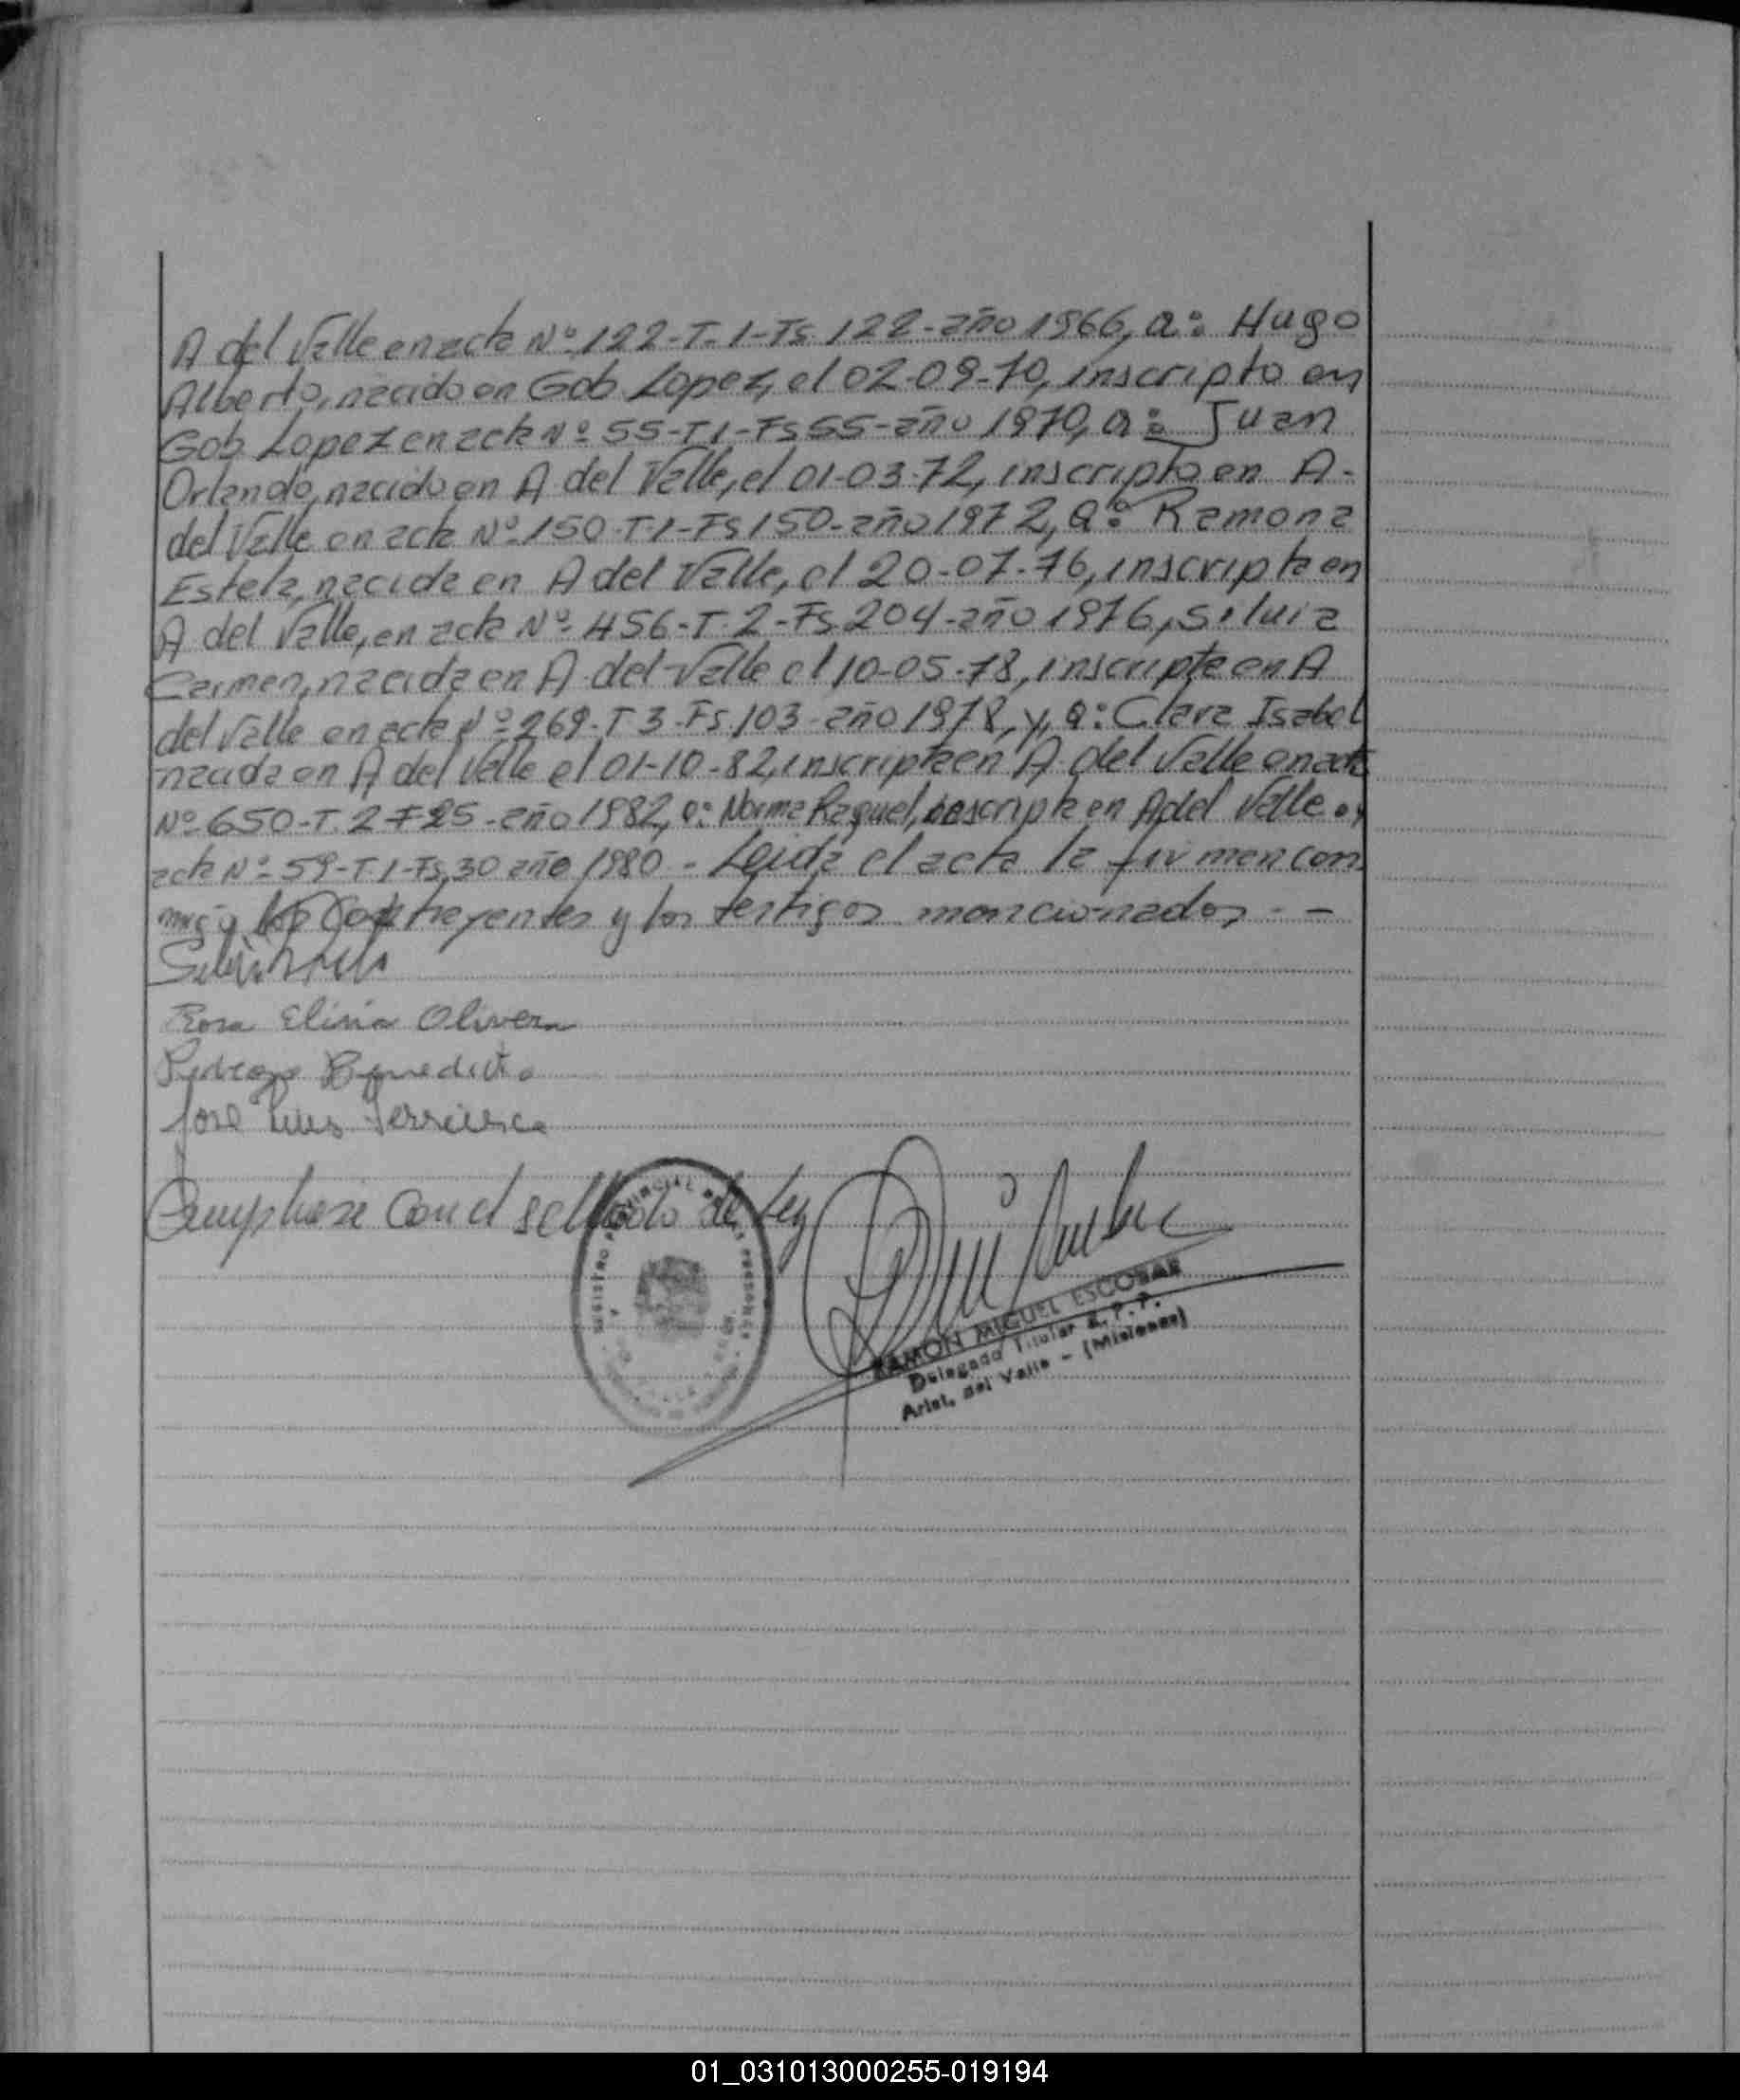 A del Valle en acta Nº 122-T-1-Fs 122-año 1966, a: Hugo
Alberto, nacido en Gob Lopez, el 02-09-70, inscripto en
Gob Lopez en acta Nº 55-T1-Fs 55-año 1970, a: Juan
Orlando, nacido en A del Valle, el 01-03-72, inscripto en A-
del Valle en acta Nº 150-T-1-Fs 150-año 1972, a: Ramona
Estela, nacida en A del Valle, el 20-07-76, inscripta en
A del Valle, en acta Nº 456-T-2-Fs 204-año 1976, Siluia
Carmen, nacida en A del Valle el 10-05-78, inscripta en A
del Valle en acta Nº 269-T 3-Fs 103-año 1978, y, a: Clara Isabel
nacida en A del Valle el 01-10-82, inscripta en A del Valle en acta
Nº 650-T. 2 F 25-año 1982, a: Norma Raquel, inscripta en A del Valle en
acta Nº 59-T 1-Fs, 30 año 1980 - Leida el acta la firmen con
migo los Contrayentes y los testigos mencionados - -
Rosa Elina Olivera
Pedrozo Benedicto
José Luis
Cumplase con el sellado de Ley
REGISTRO PROVINCIAL DE LAS PERSONAS
RAMON MIGUEL ESCOBAR
Delegado Titular R. P. P.
Arist. del Valle - (Misiones)
01_031013000255-019194